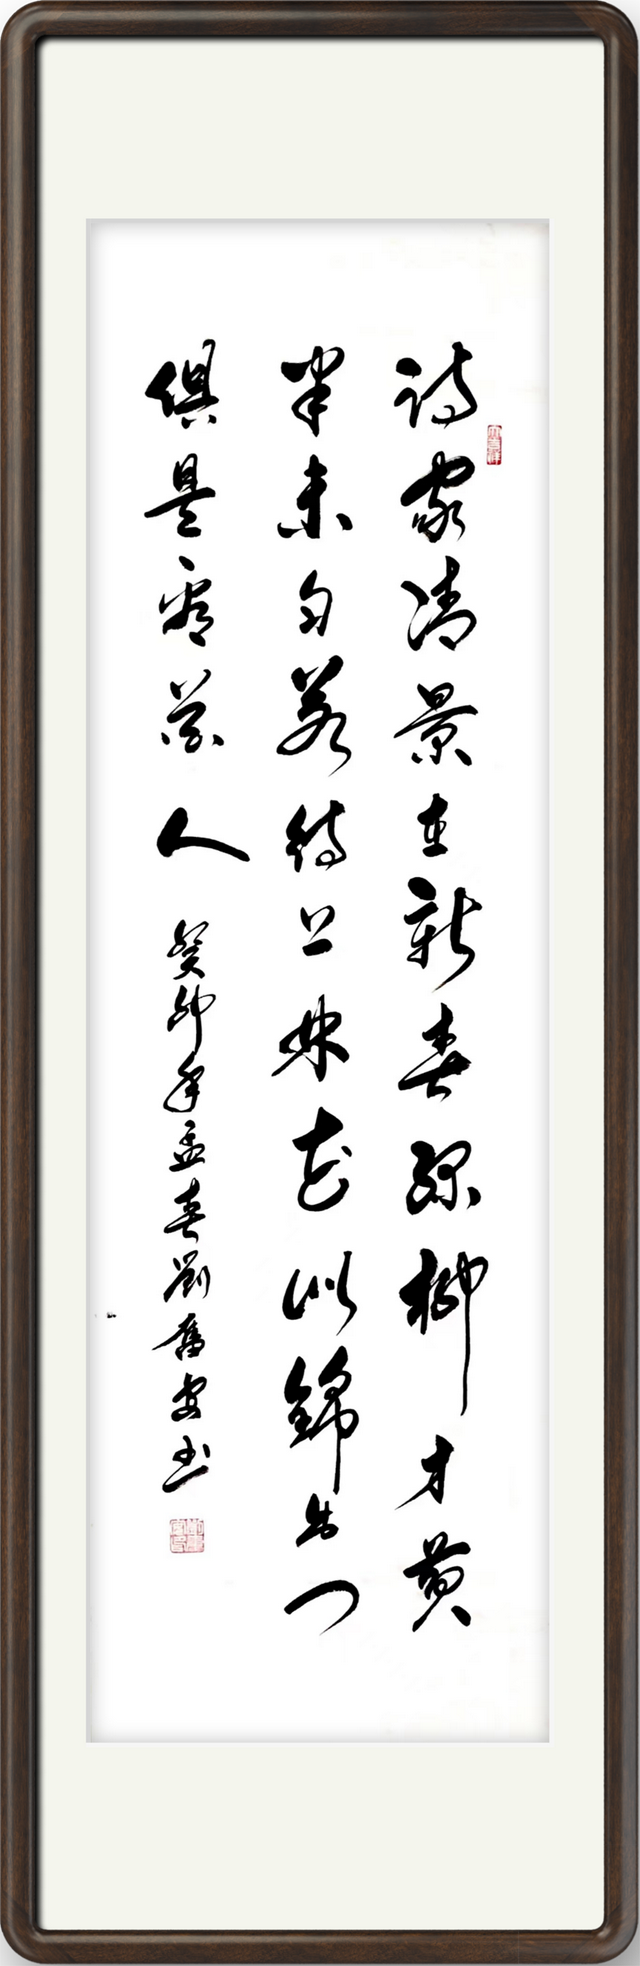 詩家清景在新春綠柳才黃
半未匀若待上林花似錦出门
俱是看花人
癸卯年孟春劉奮安书